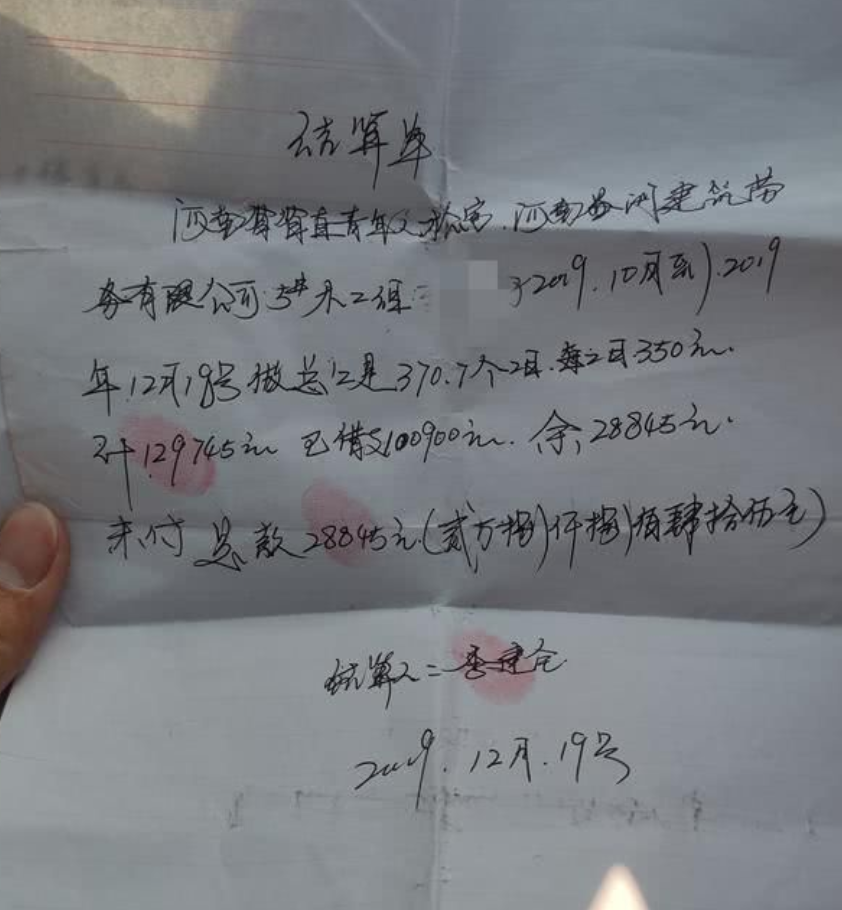 结算单
河南省省直青年人才公寓.河南黄河建筑劳
务有限公司:5#木工组: 于2019.10月到.2019
年.12月19号做总工是370.7个工日.每工日350元.
计129745元 已借支100900元.余28845元.
未付总款28845元(贰万捌仟捌佰肆拾伍元)
结算人:李建仓
2019.12月.19号